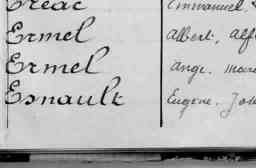 Créac Emmanuel,
Ermel Albert, Alf
Ermel Ange, Marie
Esnault Eugène, Jos